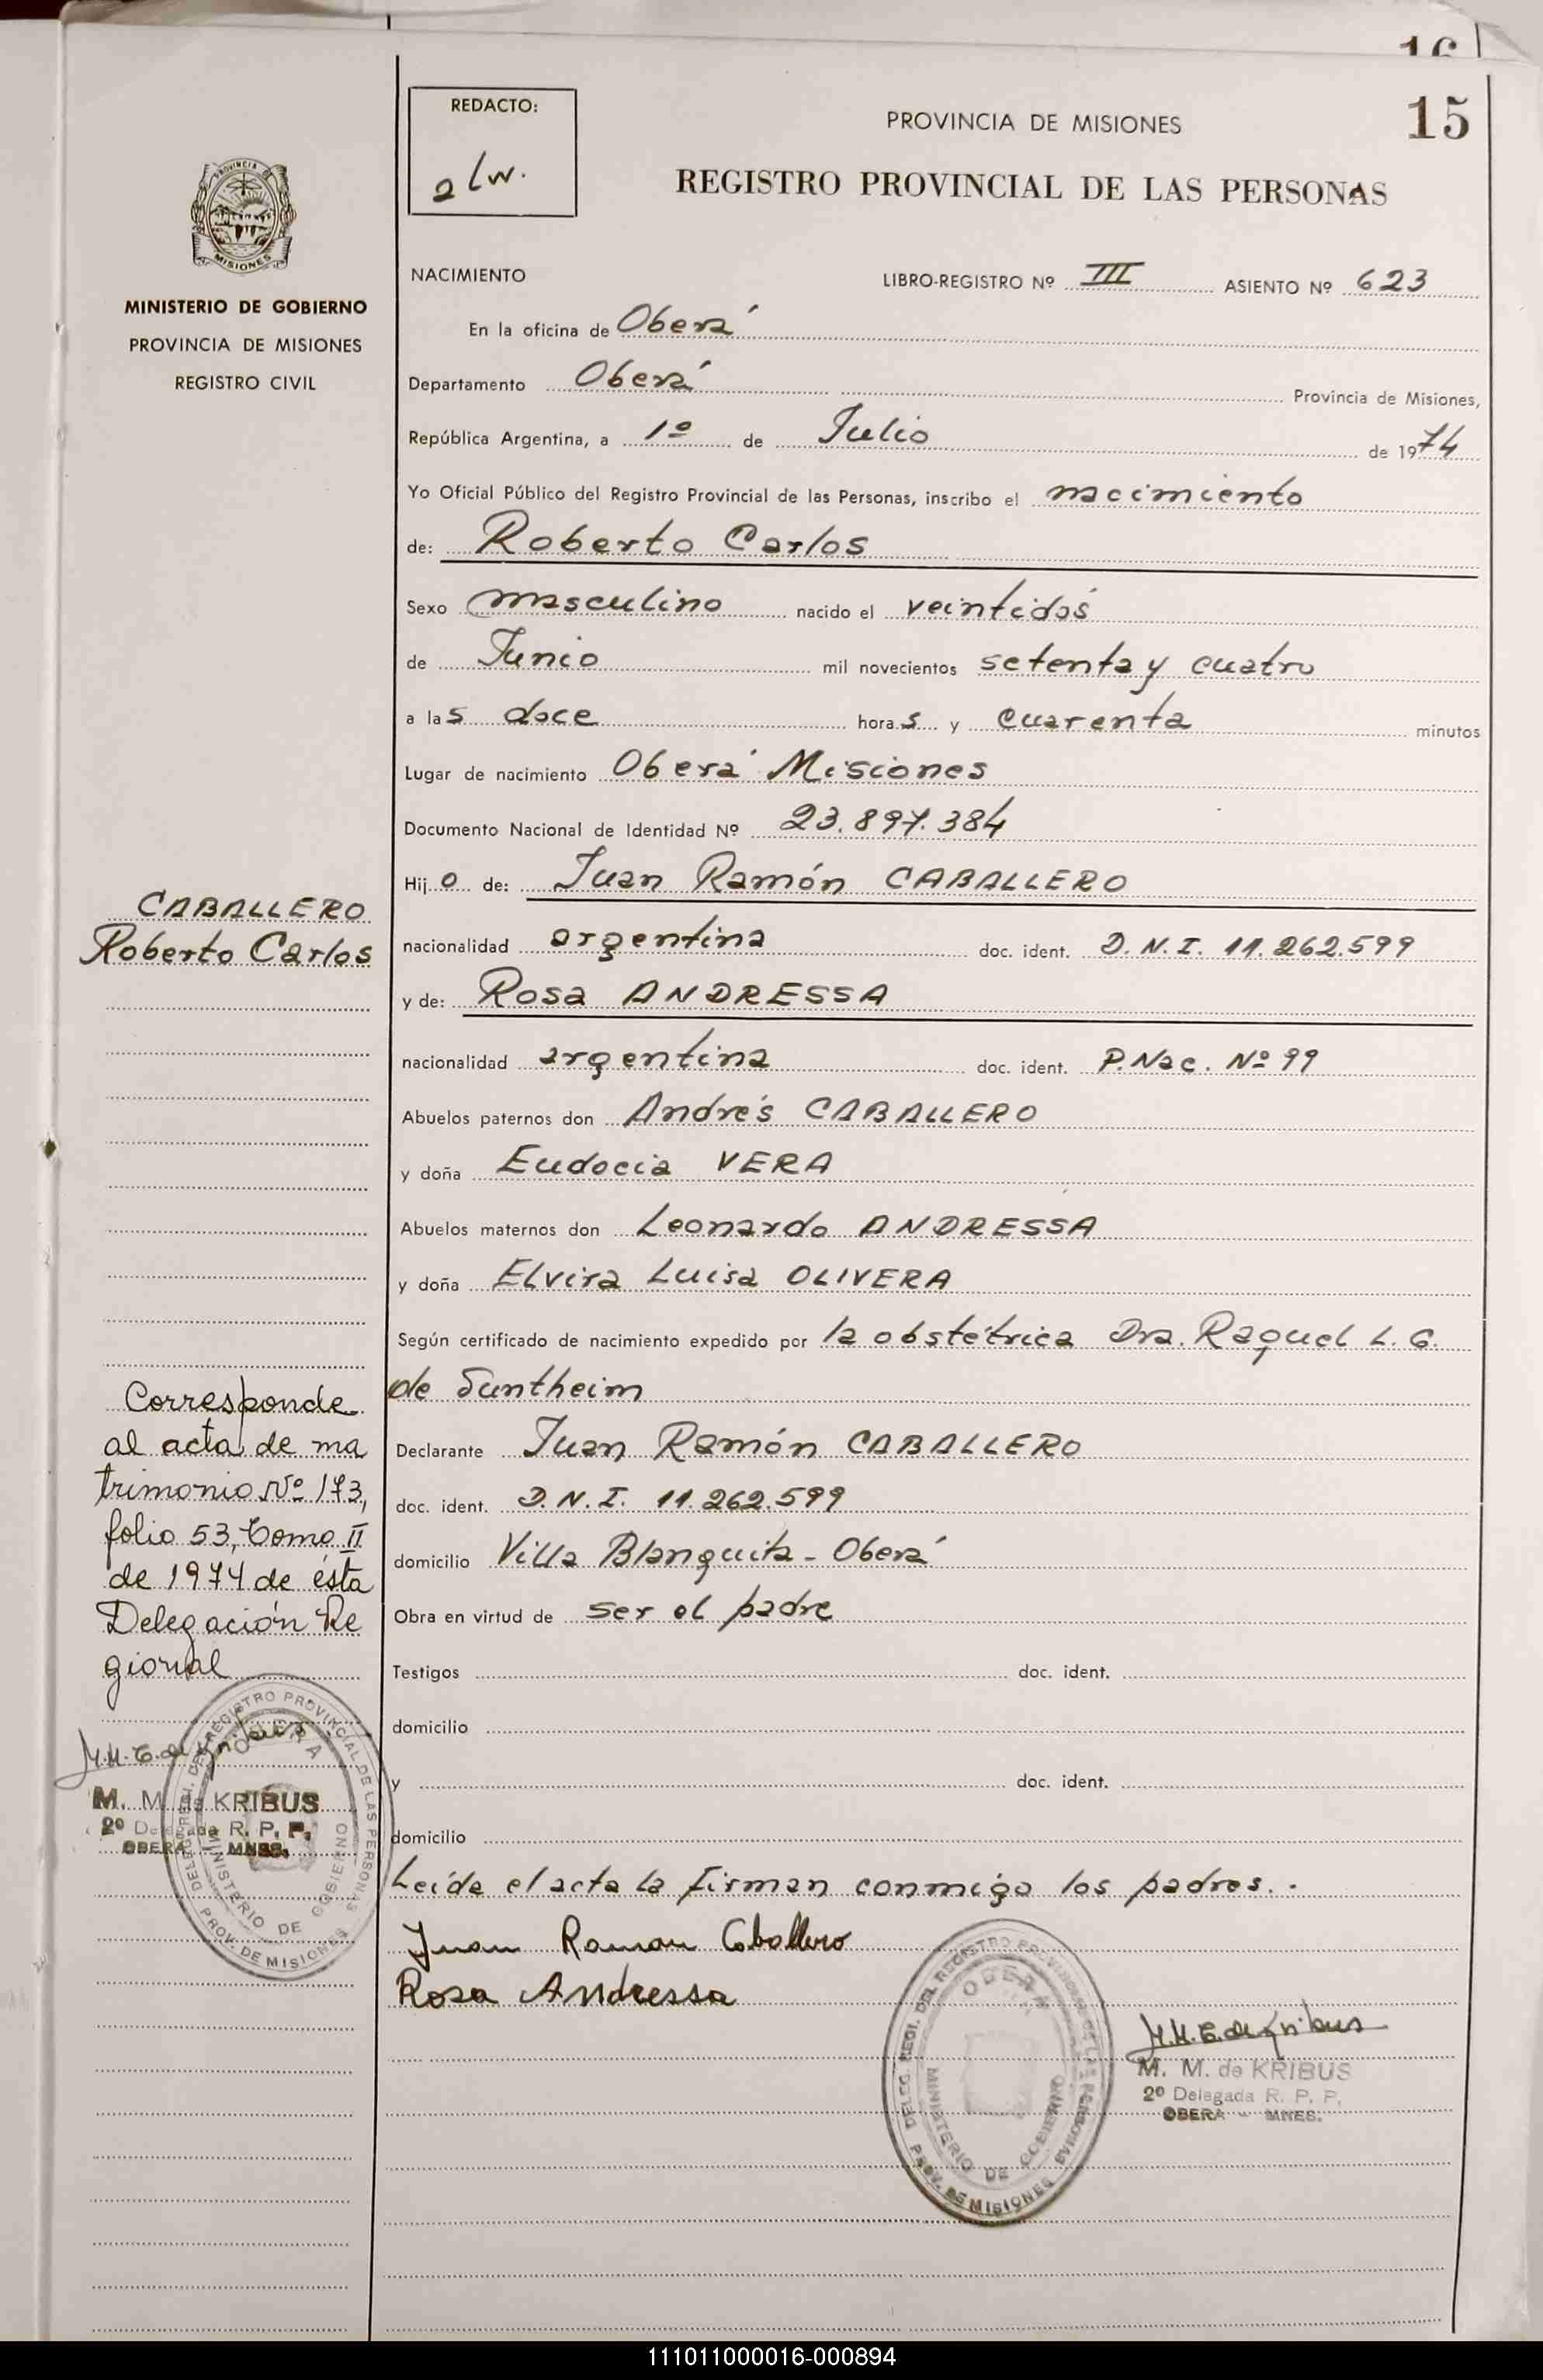 16
15
REDACTO:
PROVINCIA DE MISIONES
REGISTRO PROVINCIAL DE LAS PERSONAS
PROVINCIA DE
MISIONES
MINISTERIO DE GOBIERNO
PROVINCIA DE MISIONES
REGISTRO CIVIL
NACIMIENTO LIBRO-REGISTRO Nº III ASIENTO Nº 623
En la oficina de Oberá
Departamento Oberá Provincia de Misiones,
República Argentina, a 1º de Julio de 1974
Yo Oficial Público del Registro Provincial de las Personas, inscribo el nacimiento
de: Roberto Carlos
Sexo masculino nacido el veintidós
de Junio mil novecientos setenta y cuatro
a las doce horas y cuarenta minutos
Lugar de nacimiento Oberá Misiones
Documento Nacional de Identidad Nº 23.897.384
Hijo de: Juan Ramón CABALLERO
CABALLERO
Roberto Carlos
nacionalidad argentina doc. ident. D.N.I. 11.262.599
y de: Rosa ANDRESSA
nacionalidad argentina doc. ident. P.Nac. Nº 99
Abuelos paternos don Andrés CABALLERO
y doña Eudocia VERA
Abuelos maternos don Leonardo ANDRESSA
y doña Elvira Luisa OLIVERA
Según certificado de nacimiento expedido por la obstétrica Dra. Raquel L. G.
de Suntheim
Declarante Juan Ramón CABALLERO
doc. ident. D.N.I. 11.262.599
domicilio Villa Blanquita - Oberá
Obra en virtud de ser el padre
Testigos doc. ident.
domicilio
y doc. ident.
domicilio
Leída el acta la firman conmigo los padres.-
Juan Ramon Caballero
Rosa Andressa
Corresponde
al acta de ma
trimonio Nº 173,
folio 53, Tomo II
de 1974 de ésta
Delegación Re
gional
M. M. de KRIBUS
2º Delegada R. P. P.
OBERA - MNES.
DELEG. REGI. DEL REGISTRO PROVINCIAL DE LAS PERSONAS
OBERA
MINISTERIO DE GOBIERNO
PROV. DE MISIONES
DELEG. REGI. DEL REGISTRO PROVINCIAL DE LAS PERSONAS
OBERA
MINISTERIO DE GOBIERNO
PROV. DE MISIONES
M. M. de KRIBUS
2º Delegada R. P. P.
OBERA - MNES.
111011000016-000894